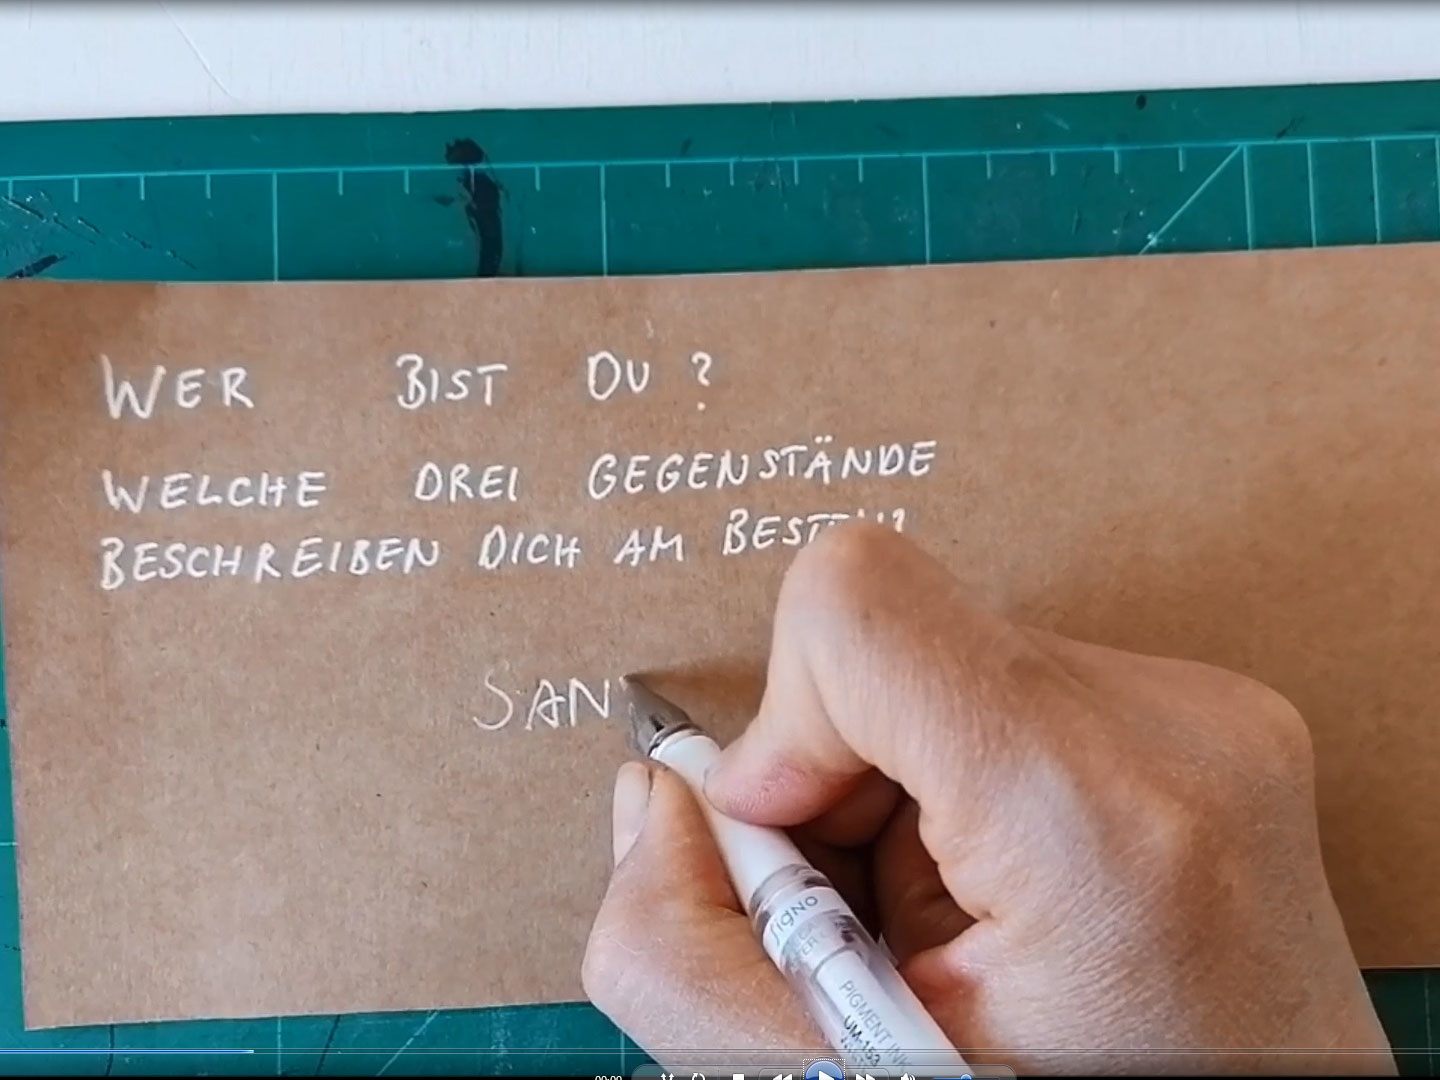 WER BIST DU?
WELCHE DREI GEGENSTÄNDE
BESCHREIBEN DICH AM BESTEN?
SAN
signo
PIGMENT INK
UM-153
00:00